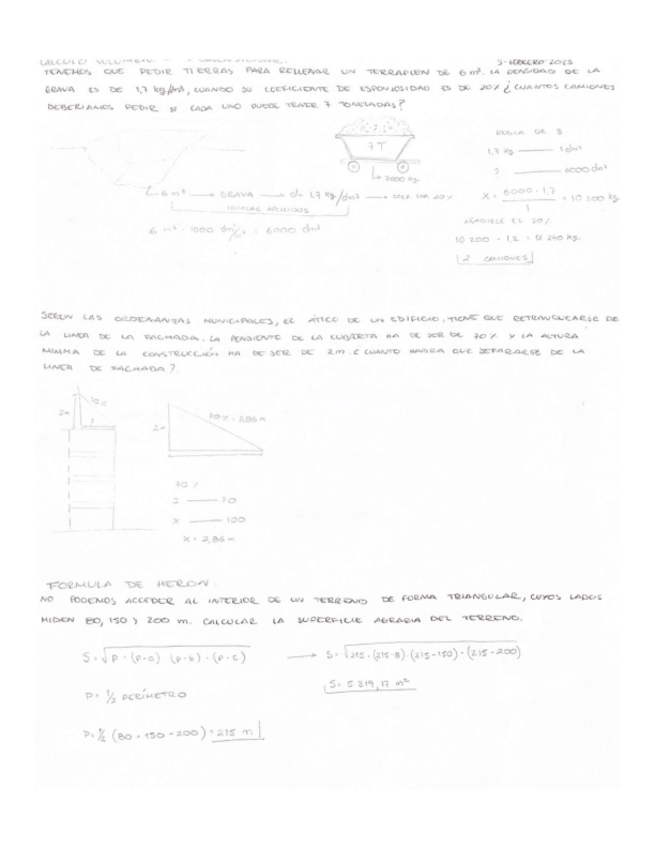 CALCULO VOLUMEN
3-FEBRERO-2023
TENEMOS QUE PEDIR TIERRAS PARA RELLENAR UN TERRAPLEN DE 6 m³. LA DENSIDAD DE LA
GRAVA ES DE 1,7 kg/dm³, CUANDO SU COEFICIENTE DE ESPONJOSIDAD ES DE 20% ¿CUANTOS CAMIONES
DEBERIAMOS PEDIR SI CADA UNO PUEDE TRAER 7 TONELADAS?
7T
7000 kg
6 m³ → GRAVA → d= 1,7 kg/dm³ → COEF. ESP. 20%
6 m³ · 1000 dm³/m³ = 6000 dm³
REGLA DE 3
1,7 kg — 1 dm³
? — 6000 dm³
X = 6000 · 1,7 / 1 = 10 200 kg
AÑADIRLE EL 20%
10 200 · 1,2 = 12 240 kg
2 CAMIONES
SEGUN LAS ORDENANZAS MUNICIPALES, EL ÁTICO DE UN EDIFICIO, TIENE QUE RETRANQUEARSE DE
LA LINEA DE LA FACHADA. LA PENDIENTE DE LA CUBIERTA HA DE SER DE 70% Y LA ALTURA
MINIMA DE LA CONSTRUCCIÓN HA DE SER DE 2m. ¿CUANTO HABRA QUE SEPARARSE DE LA
LINEA DE FACHADA?
2m
70%
?
2m
70% = 2,86 m
70%
2 — 70
X — 100
X = 2,86 m
FORMULA DE HERON.
NO PODEMOS ACCEDER AL INTERIOR DE UN TERRENO DE FORMA TRIANGULAR, CUYOS LADOS
MIDEN 80, 150 Y 200 m. CALCULAR LA SUPERFICIE AGRARIA DEL TERRENO.
S = √p · (p-a) · (p-b) · (p-c) → S = √215 · (215-8) · (215-150) · (215-200)
S = 5 819,17 m²
P = 1/2 PERÍMETRO
P = 1/2 (80 + 150 + 200) = 215 m